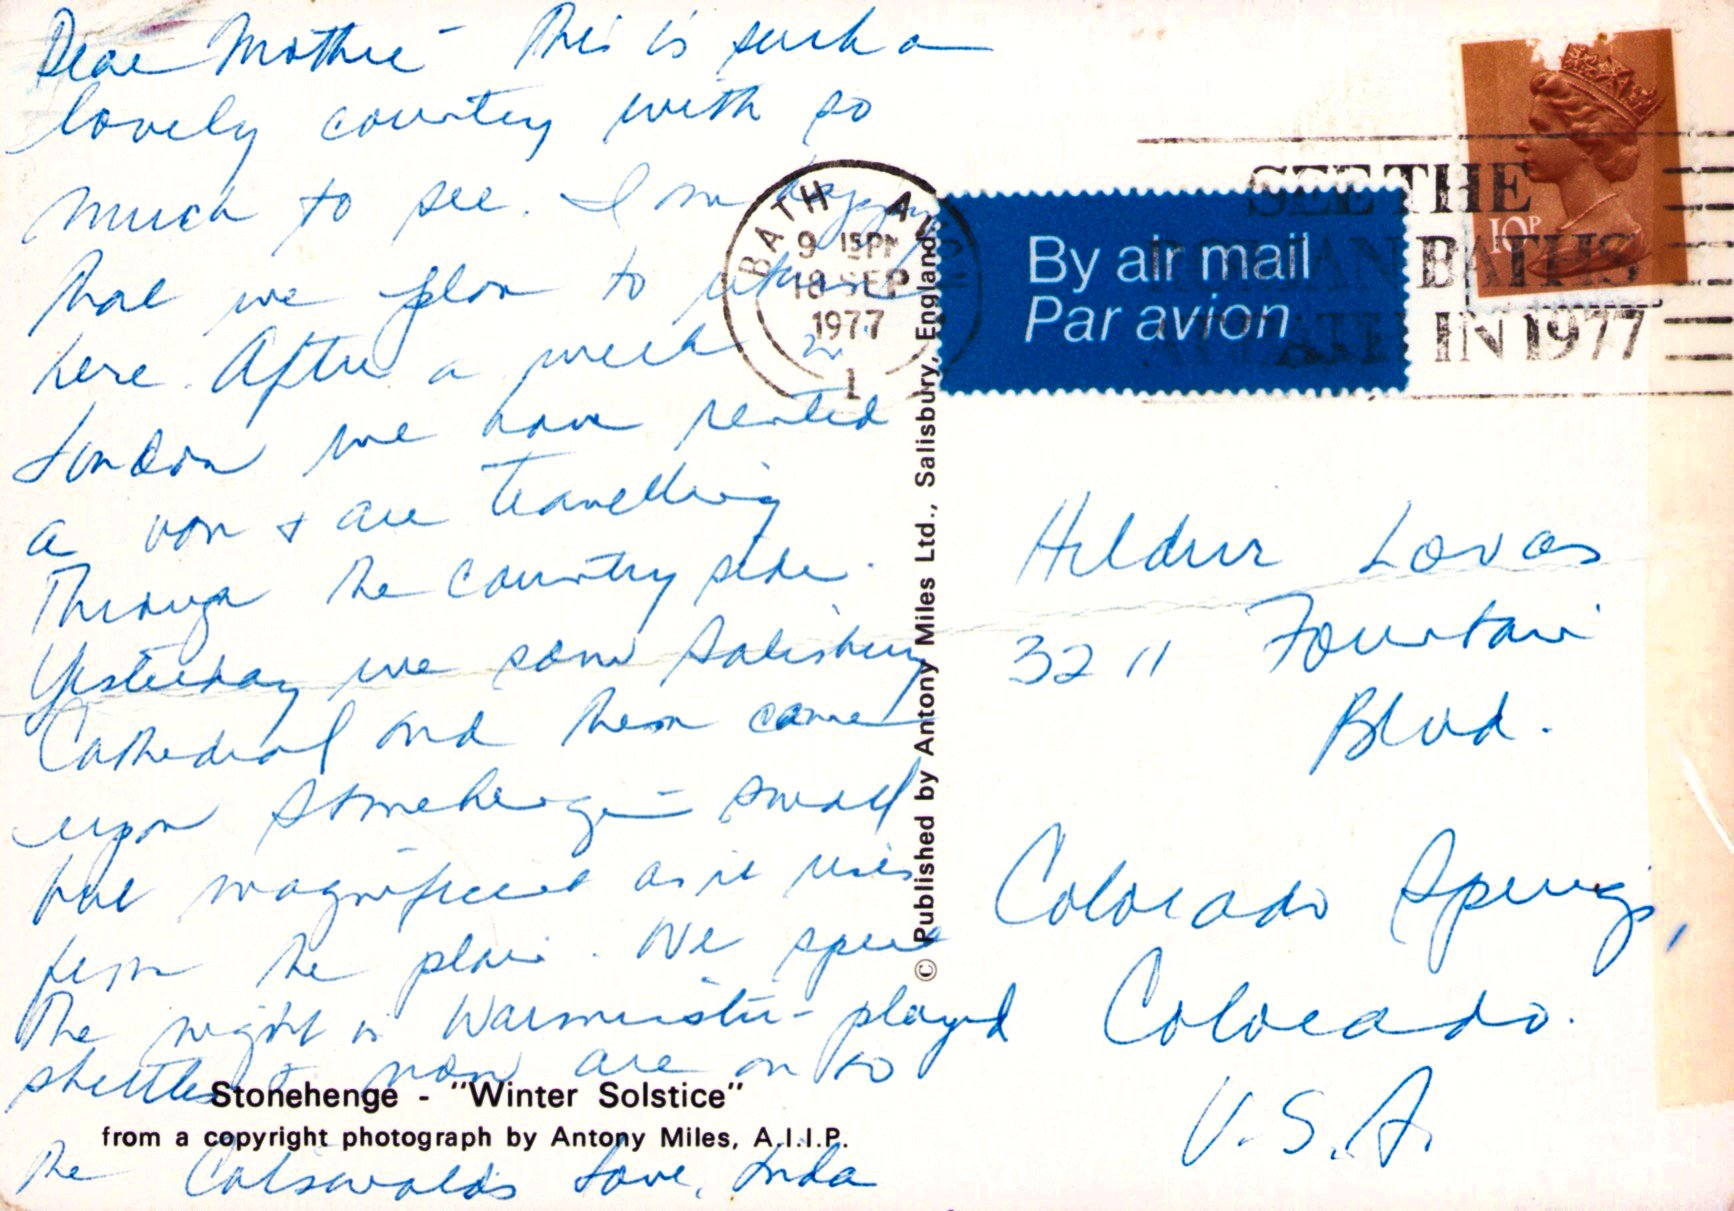 Dear Mother - This is such a
lovely country with so
much to see. I am happy
that we plan to return
here. After a week in
London we have rented
a van & are travelling
Through the country side.
Yesterday we saw Salisbury
Cathedral and then came
upon Stonehenge - small
but magnificent as it rises
from the plain. We spent
The night in Warminster - played
skittles & now are on to
The Cotswolds Love, Linda
Stonehenge - "Winter Solstice"
from a copyright photograph by Antony Miles, A.I.I.P.
© Published by Antony Miles Ltd., Salisbury, England.
BATH
9 15 PM
18 SEP
1977
1
By air mail
Par avion
SEE THE
ROMAN BATHS
BATH IN 1977
10P
Lovas
3211 Fountain
Blvd.
Colorado Springs,
Colorado.
U.S.A.